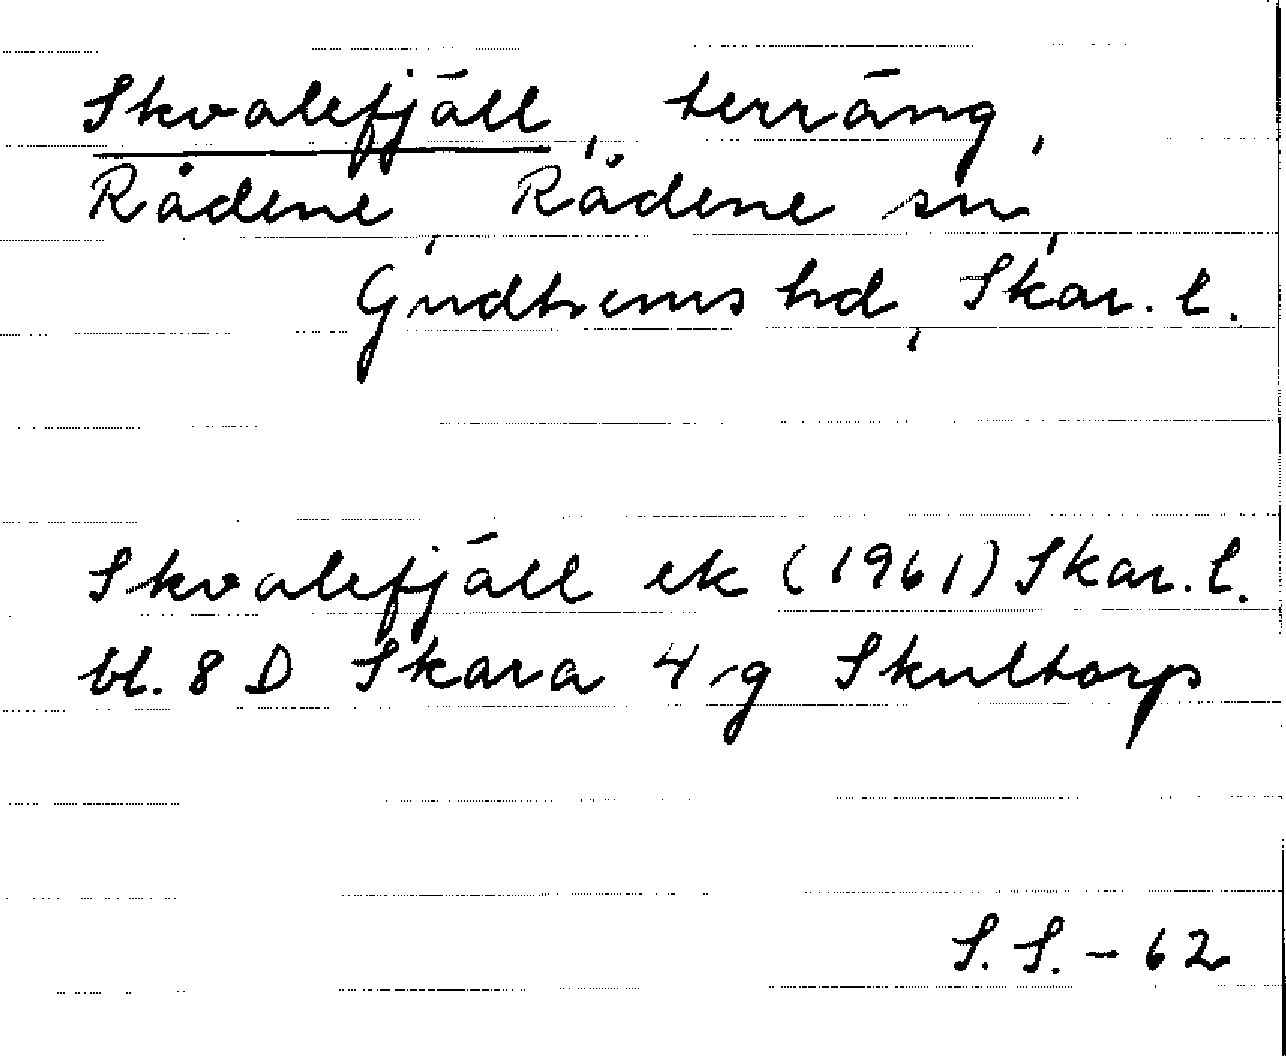 Skvalefjäll, terräng,
Rådene, Rådene sn,
Gudhems hd, Skar. l.
Skvalefjäll ek (1961) Skar. l.
bl. 8 D Skara 4 g Skultorp
S. S. - 62